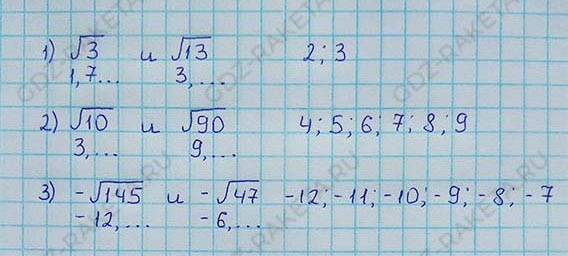 1) √3 и √13 2; 3
1,7... 3,...
2) √10 и √90 4; 5; 6; 7; 8; 9
3,... 9,...
3) -√145 и -√47 -12; -11; -10; -9; -8; -7
-12,... -6,...
GDZ-RAKETA.RU